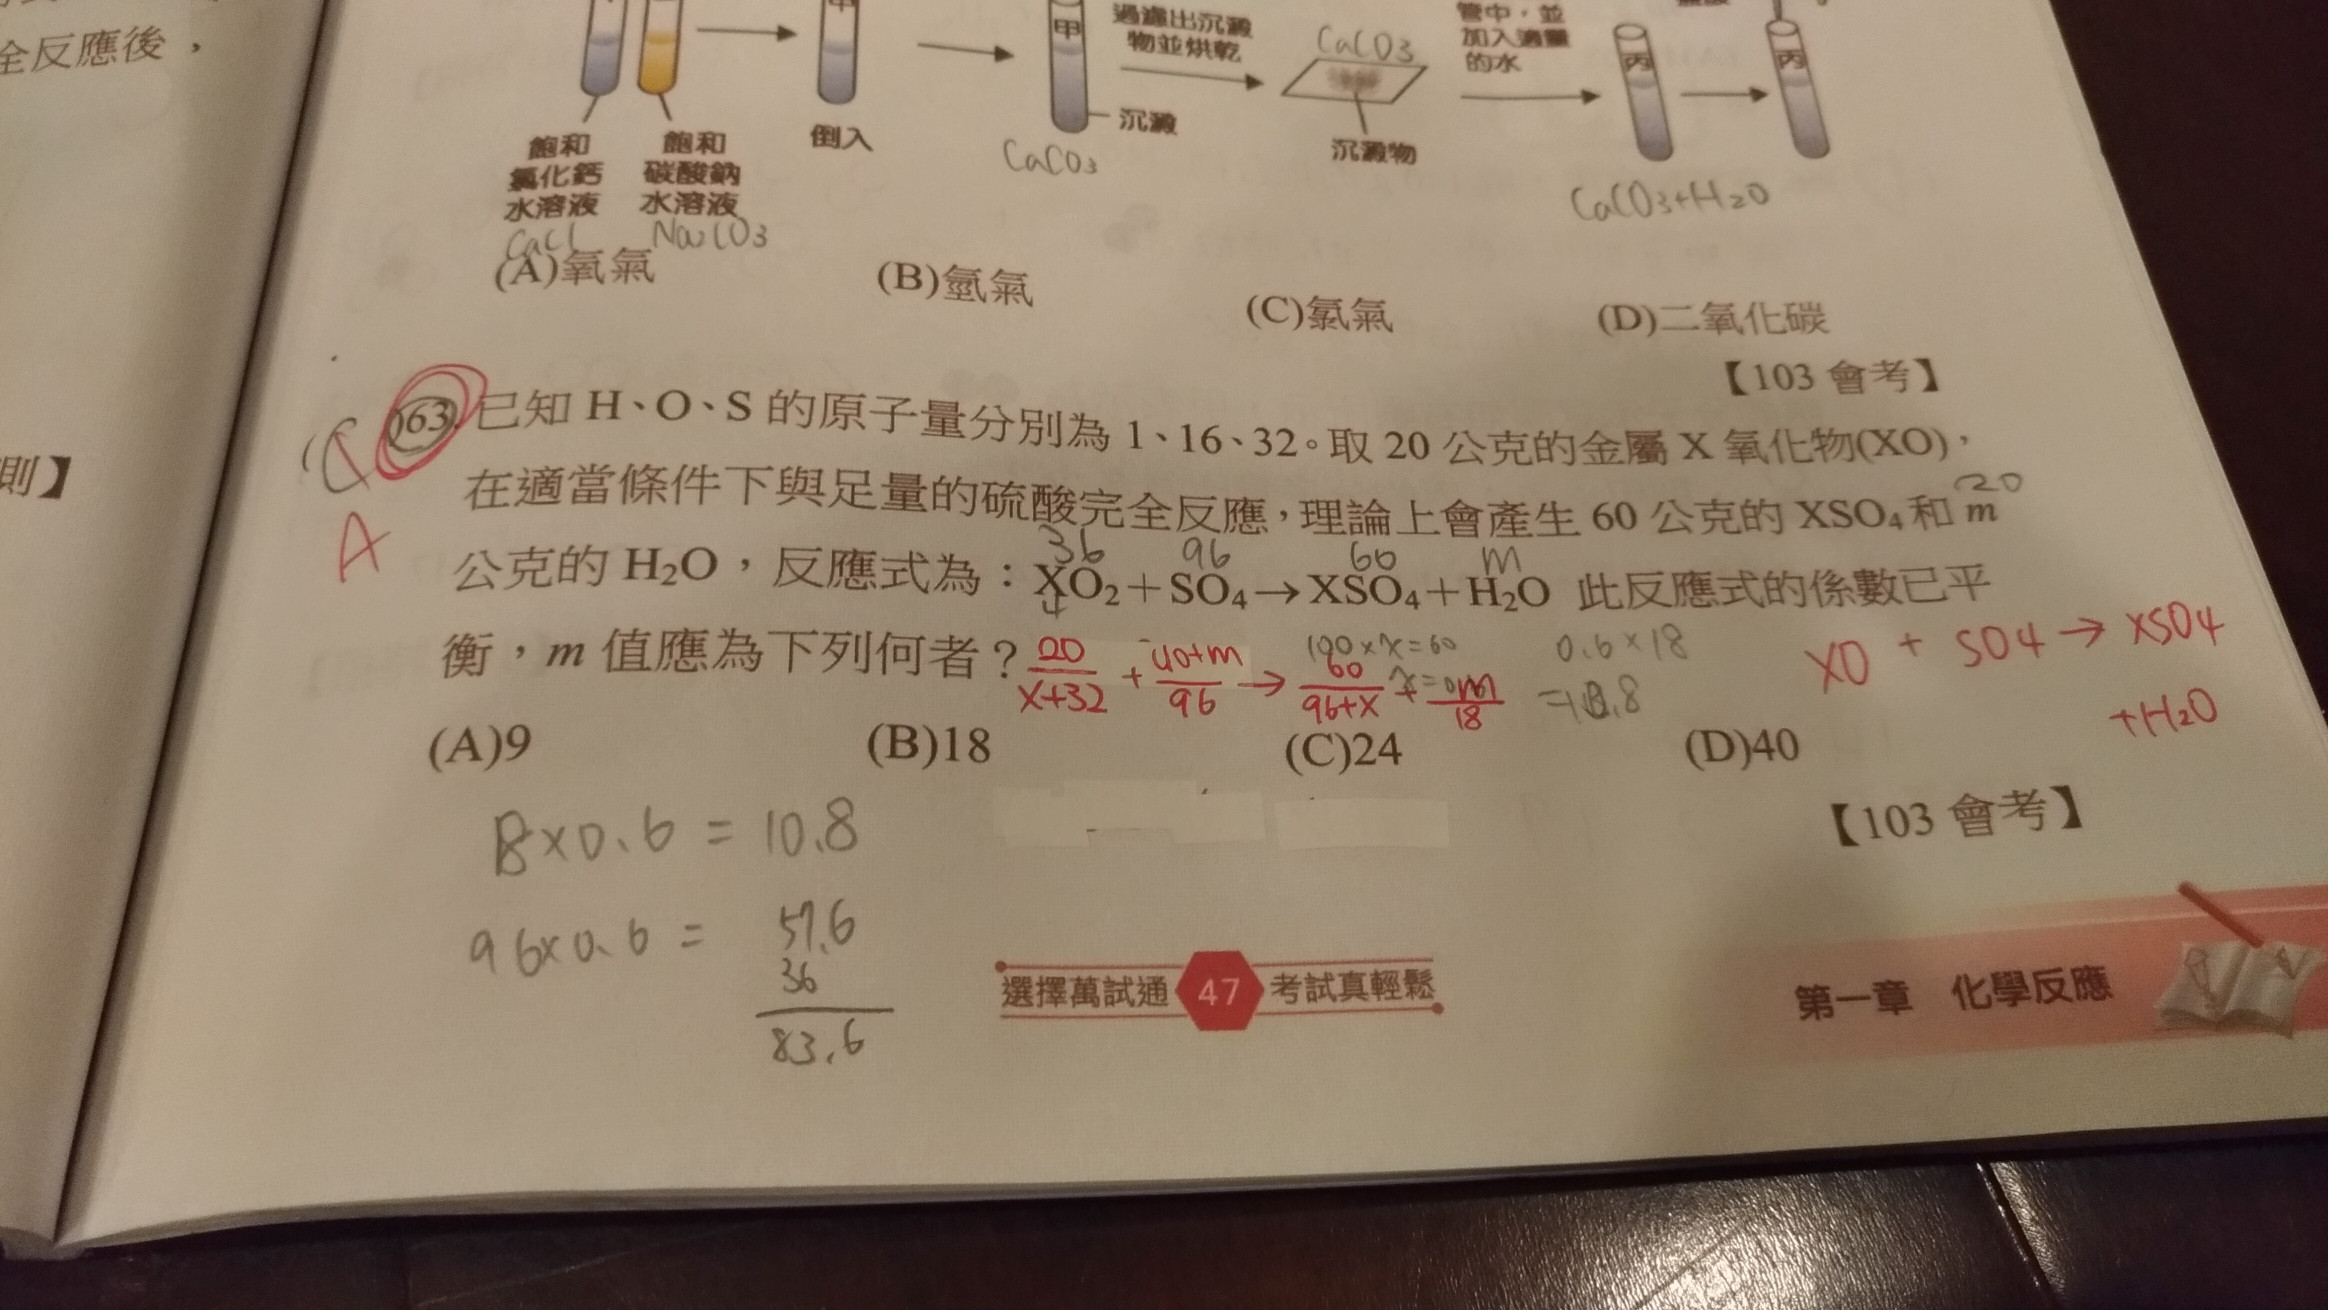 全反應後，
則】
甲
甲
過濾出沉澱
物並烘乾
CaCO3
管中，並
加入適量
的水
丙
丙
沉澱
CaCO3
沉澱物
CaCO3+H2O
飽和
氯化鈣
水溶液
CaCl
飽和
碳酸鈉
水溶液
Na2CO3
倒入
(A)氧氣 (B)氫氣 (C)氯氣 (D)二氧化碳
【103 會考】
63. 已知 H、O、S 的原子量分別為 1、16、32。取 20 公克的金屬 X 氧化物(XO)，
在適當條件下與足量的硫酸完全反應，理論上會產生 60 公克的 XSO₄ 和 m
20
A
36 96 60 m
公克的 H₂O，反應式為：XO₂＋SO₄→XSO₄＋H₂O 此反應式的係數已平
衡，m 值應為下列何者？
20/X+32 + 40+m/96 → 60/96+X + m/18
100×x=60
0.6×18
=10.8
XO + SO4 → XSO4
+H2O
(A)9 (B)18 (C)24 (D)40
【103 會考】
8×0.6 = 10.8
96×0.6 = 57.6
36
83.6
選擇萬試通 47 考試真輕鬆
第一章 化學反應